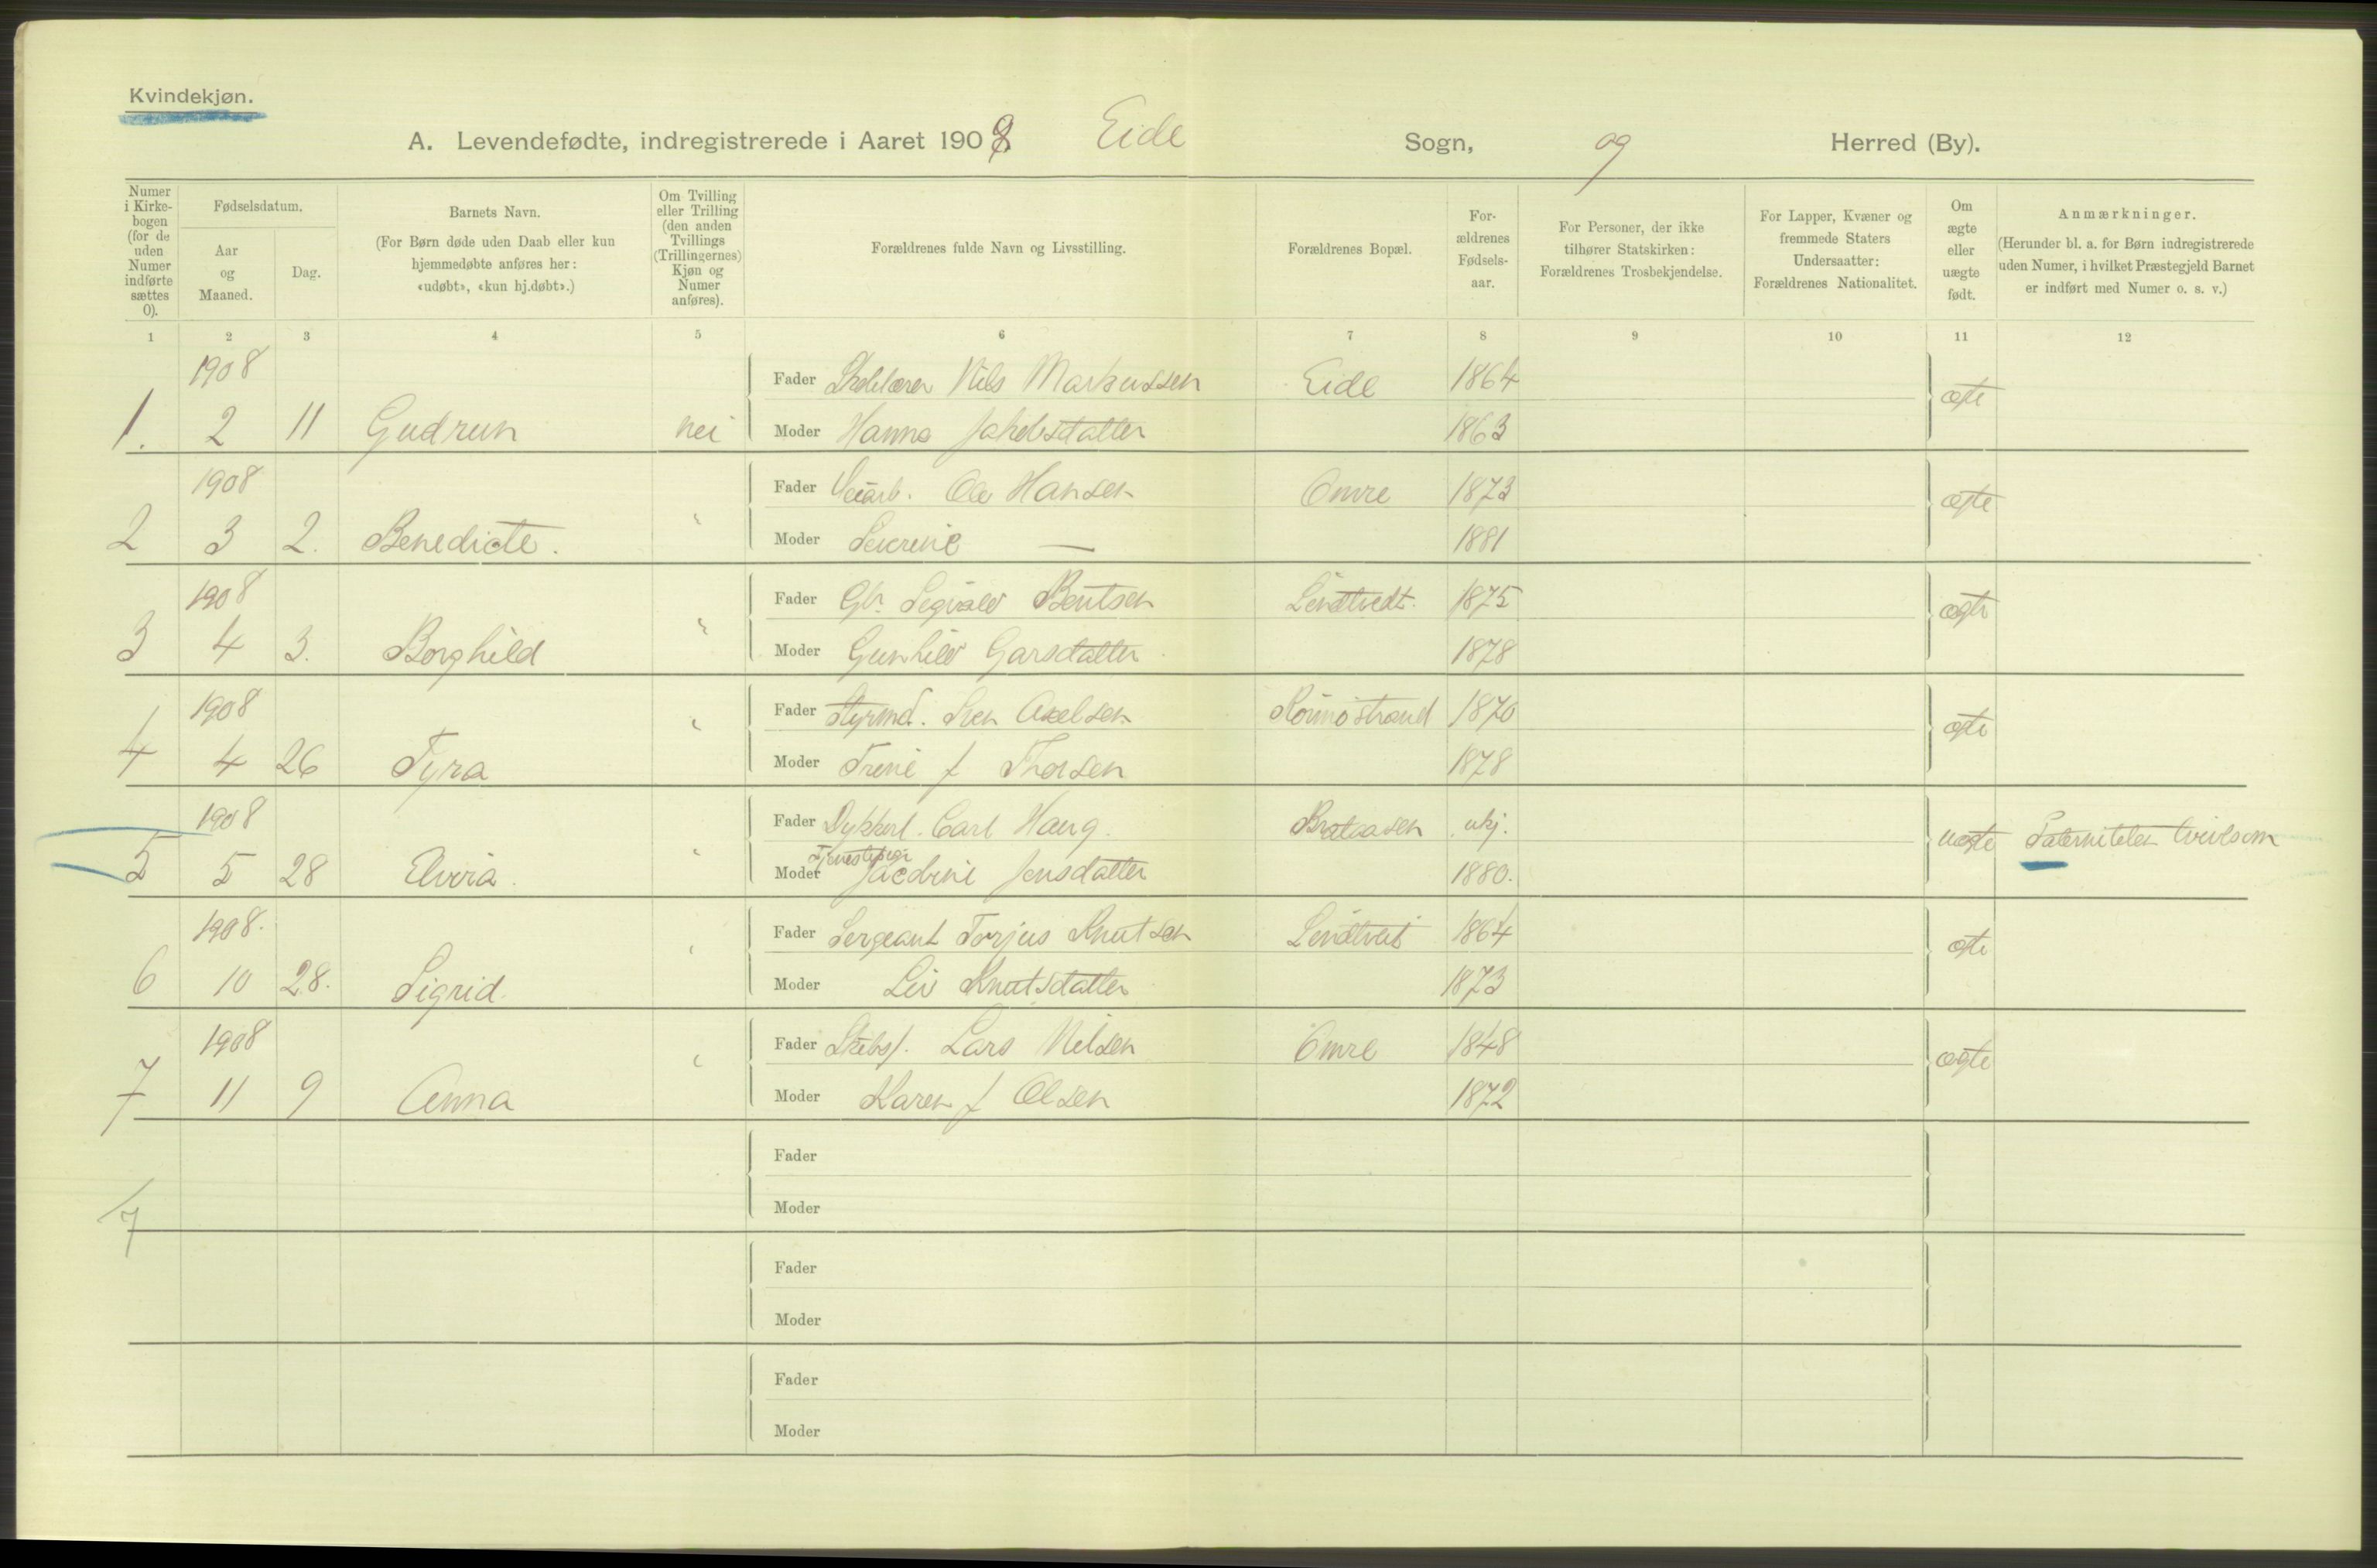 Kvindekjøn.
A. Levendefødte, indregistrerede i Aaret 1908 Eide Sogn, og Herred (By).
Numer i Kirke-bogen (for de uden Numer indførte sættes 0).
Fødselsdatum.
Aar og Maaned.
Dag.
Barnets Navn.
(For Børn døde uden Daab eller kun hjemmedøbte anføres her: «udøbt», «kun hj.døbt».)
Om Tvilling eller Trilling (den anden Tvillings (Trillingernes) Kjøn og Numer anføres).
Forældrenes fulde Navn og Livsstilling.
Forældrenes Bopæl.
For-ældrenes Fødsels-aar.
For Personer, der ikke tilhører Statskirken: Forældrenes Trosbekjendelse.
For Lapper, Kvæner og fremmede Staters Undersaatter: Forældrenes Nationalitet.
Om ægte eller uægte født.
Anmærkninger.
(Herunder bl. a. for Børn indregistrerede uden Numer, i hvilket Præstegjeld Barnet er indført med Numer o. s. v.)
1 2 3 4 5 6 7 8 9 10 11 12
1908 Fader Skolelærer Nils Markussen Eide 1864 ægte
1. 2 11 Gudrun nei Moder Hanna Jakobsdatter 1863
1908 Fader Veiarb. Ole Hansen Omre 1873 ægte
2 3 2. Benedicte. " Moder Severine — 1881
1908 Fader Gbr. Sigvald Bentsen Lindtvedt. 1875 ægte
3 4 3. Borghild " Moder Gunhild Garsdatter 1878
1908 Fader Styrmd. Sven Axelsen 1870 ægte
4 4 26 Tyra " Moder Trine f Thorsen 1878
1908 Fader Carl Haug. Brataasen ukj. uægte Paterniteten tvivlsom
5 5 28 Elvira. " Moder Tjenestepige Jacobine Jensdatter 1880.
1908. Fader Sergeant Torjus Knutsen Lindtveit 1864 ægte
6 10 28. Sigrid. " Moder Liv Knutsdatter 1873
1908 Fader Skibsf. Lars Nilsen Omre 1848 ægte
7 11 9 Anna " Moder Karen f Olsen 1872
Fader
Moder
/7
Fader
Moder
Fader
Moder